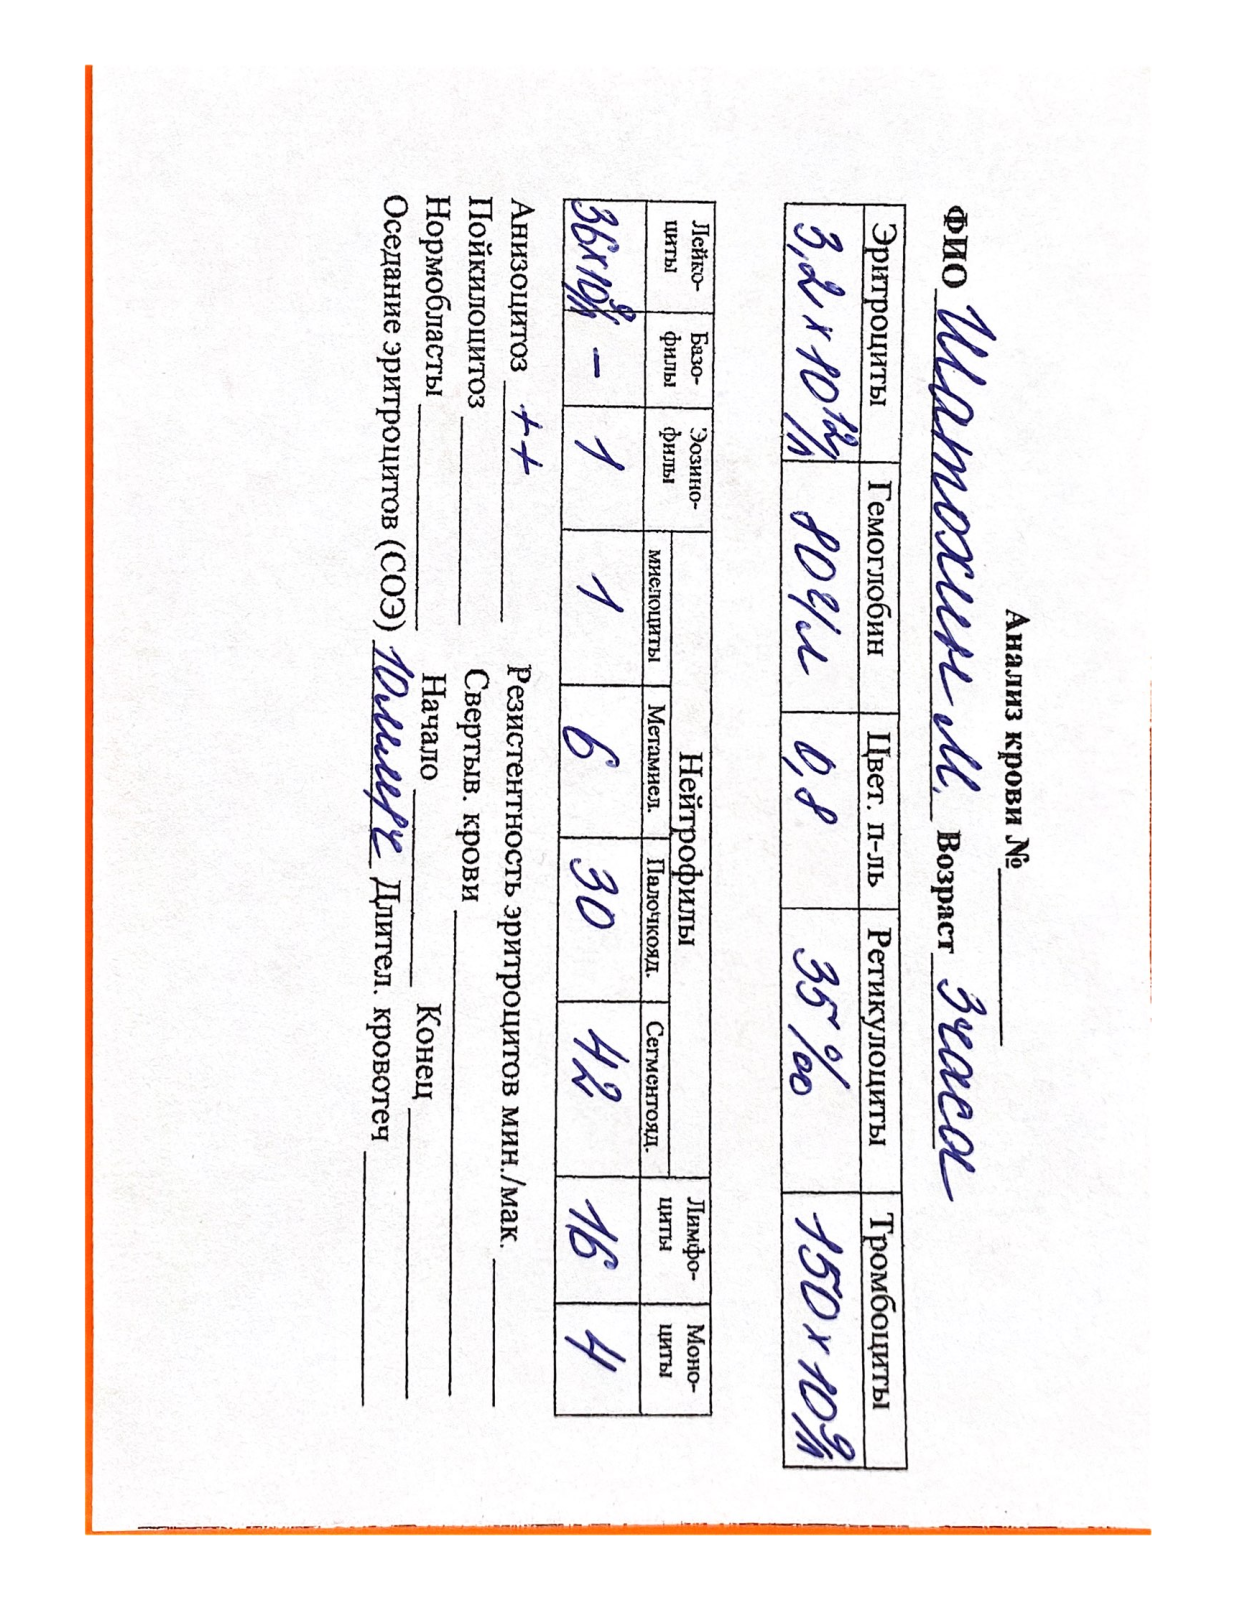 Анализ крови №
ФИО Шатохин М. Возраст 3 часа
Эритроциты Гемоглобин Цвет. п-ль Ретикулоциты Тромбоциты
3,2 x 10¹²/л 80 г/л 0,8 35‰ 150 x 10⁹/л
Лейко-циты Базо-филы Эозино-филы Нейтрофилы Лимфо-циты Моно-циты
миелоциты Метамиел. Палочкояд. Сегментояд.
36 x 10⁹/л – 1 1 6 30 42 16 4
Анизоцитоз ++ Резистентность эритроцитов мин./мак.
Пойкилоцитоз Свертыв. крови
Нормобласты Начало Конец
Оседание эритроцитов (СОЭ) 10 мм/ч Длител. кровотеч